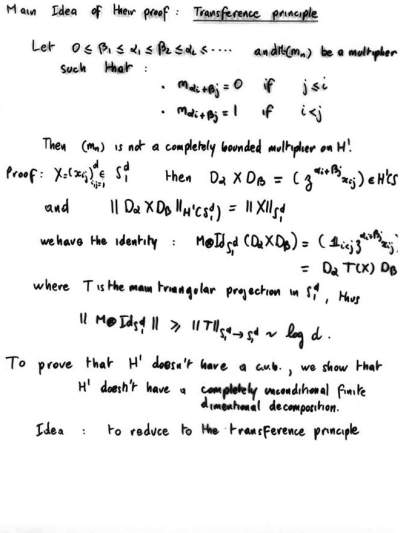 Main Idea of their proof : Transference principle
Let 0 ≤ β₁ ≤ α₁ ≤ β₂ ≤ α₂ ≤ .... and (mₙ) be a multiplier
such that :
• m_{αi+βj} = 0 if j ≤ i
• m_{αi+βj} = 1 if i < j
Then (mₙ) is not a completely bounded multiplier on H¹.
Proof : X = (x_{ij})_{i,j=1}^d ∈ S₁^d then D_α X D_β = (z^{αi+βj} x_{ij}) ∈ H¹(S
and || D_α X D_β ||_{H¹(S₁^d)} = || X ||_{S₁^d}
we have the identity : M⊗Id_{S₁^d} (D_α X D_β) = (1_{i<j} z^{αi+βj} x_{ij})
= D_α T(X) D_β
where T is the main triangular projection in S₁^d, thus
|| M⊗Id_{S₁^d} || ≥ || T ||_{S₁^d → S₁^d} ~ log d.
To prove that H¹ doesn't have a c.u.b., we show that
H¹ doesn't have a completely unconditional finite
dimentional decomposition.
Idea : to reduce to the transference principle